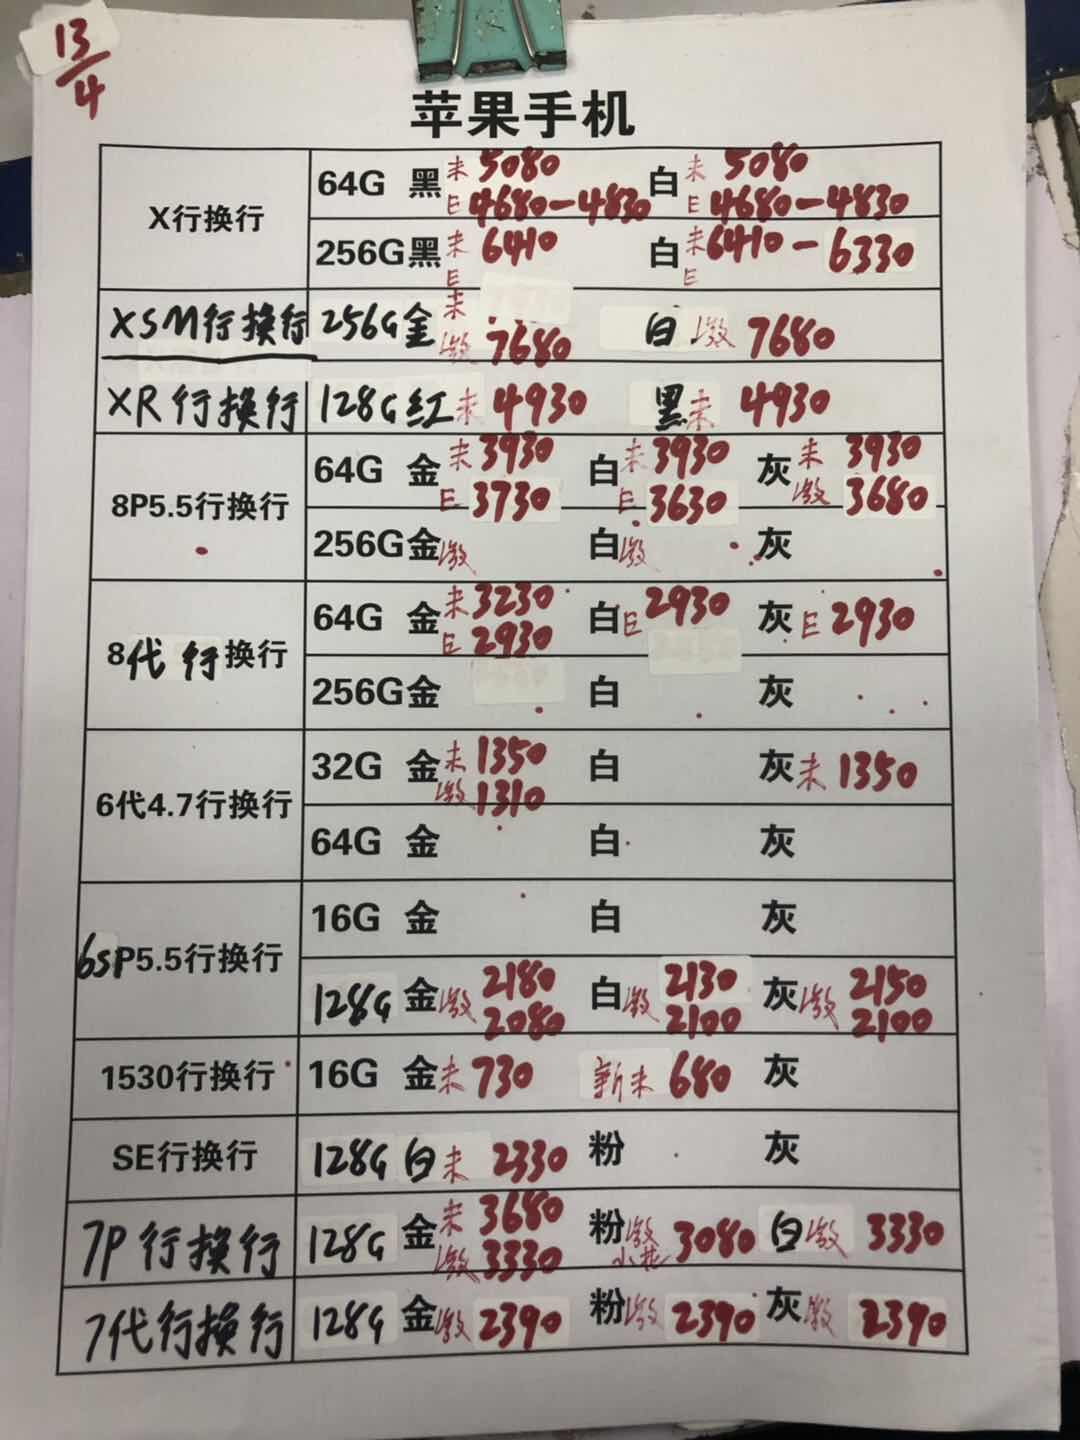 13/4
苹果手机
X行换行
64G 黑 未 5080 白 未 5080
E 4680-4830 E 4680-4830
256G黑 未 6410 白 未 6410-6330
E E
XSM行换行 256G金 未
激 7680 白 激 7680
XR行换行 128G红 未 4930 黑 未 4930
8P5.5行换行
64G 金 未 3930 白 未 3930 灰 未 3930
E 3730 E 3630 激 3680
256G金 激 白 激 灰
8代行换行
64G 金 未 3230 白 E 2930 灰 E 2930
E 2930
256G金 白 灰
6代4.7行换行
32G 金 未 1350 白 灰 未 1350
激 1310
64G 金 白 灰
6sP5.5行换行
16G 金 白 灰
128G 金 激 2180 白 激 2130 灰 激 2150
2080 2100 2100
1530行换行 16G 金 未 730 新未 680 灰
SE行换行 128G 白 未 2330 粉 灰
7P行换行 128G 金 未 3680 粉 激 3080 白 激 3330
激 3330 小花
7代行换行 128G 金 激 2390 粉 激 2390 灰 激 2390